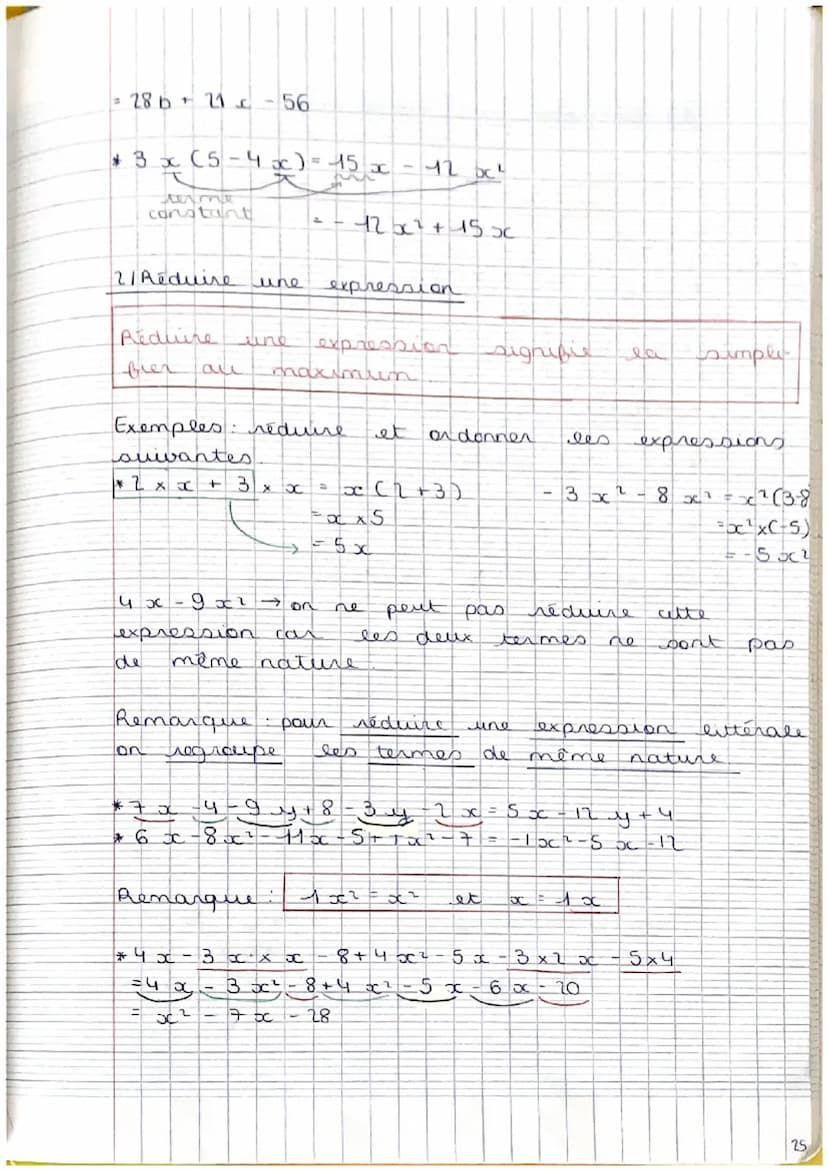 = 28b + 21x - 56
* 3x(5-4x) = 15x - 12x²
terme
constant
= - 12x² + 15x
2/ Réduire une expression
Réduire une expression signifie la simpli-
fier au maximum.
Exemples : réduire et ordonner les expressions
suivantes.
* 2 × x + 3 × x = x(2+3) - 3x² - 8x² = x²(3-8)
= x × 5 = x² × (-5)
= 5x = -5x²
4x - 9x² → on ne peut pas réduire cette
expression car les deux termes ne sont pas
de même nature.
Remarque : pour réduire une expression littérale
on regroupe les termes de même nature
* 7x - 4 - 9y + 8 - 3y - 2x = 5x - 12y + 4
* 6x - 8x² - 11x - 5 + 7x² - 7 = -1x² - 5x - 12
Remarque : 1x² = x² et x = 1x
* 4x - 3x × x - 8 + 4x² - 5x - 3×2x - 5×4
= 4x - 3x² - 8 + 4x² - 5x - 6x - 20
= x² - 7x - 28
25